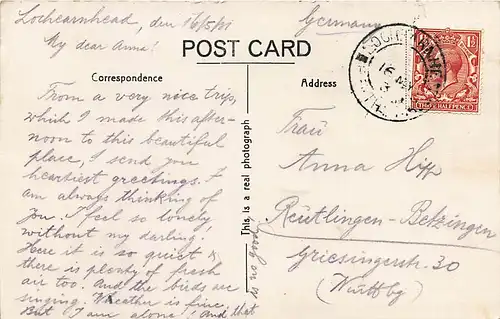 Lochearnhead, den 16/5/
Germany
My dear Anna!
POST CARD
Correspondence
Address
THREE HALFPENCE
From a very nice trip,
which I made this after-
noon to this beautiful
place, I send you
heartiest greetings. I
am always thinking of
you. I feel so lonely
without my darling.
Here it is so quiet &
there is plenty of fresh
air too. And the birds are
singing. Wheather is fine.
But I am alone! And that
is no good
This is a real photograph
Frau
Anna Hipp
Reutlingen-Betzingen
Griesingerstr. 30
(Württbg)